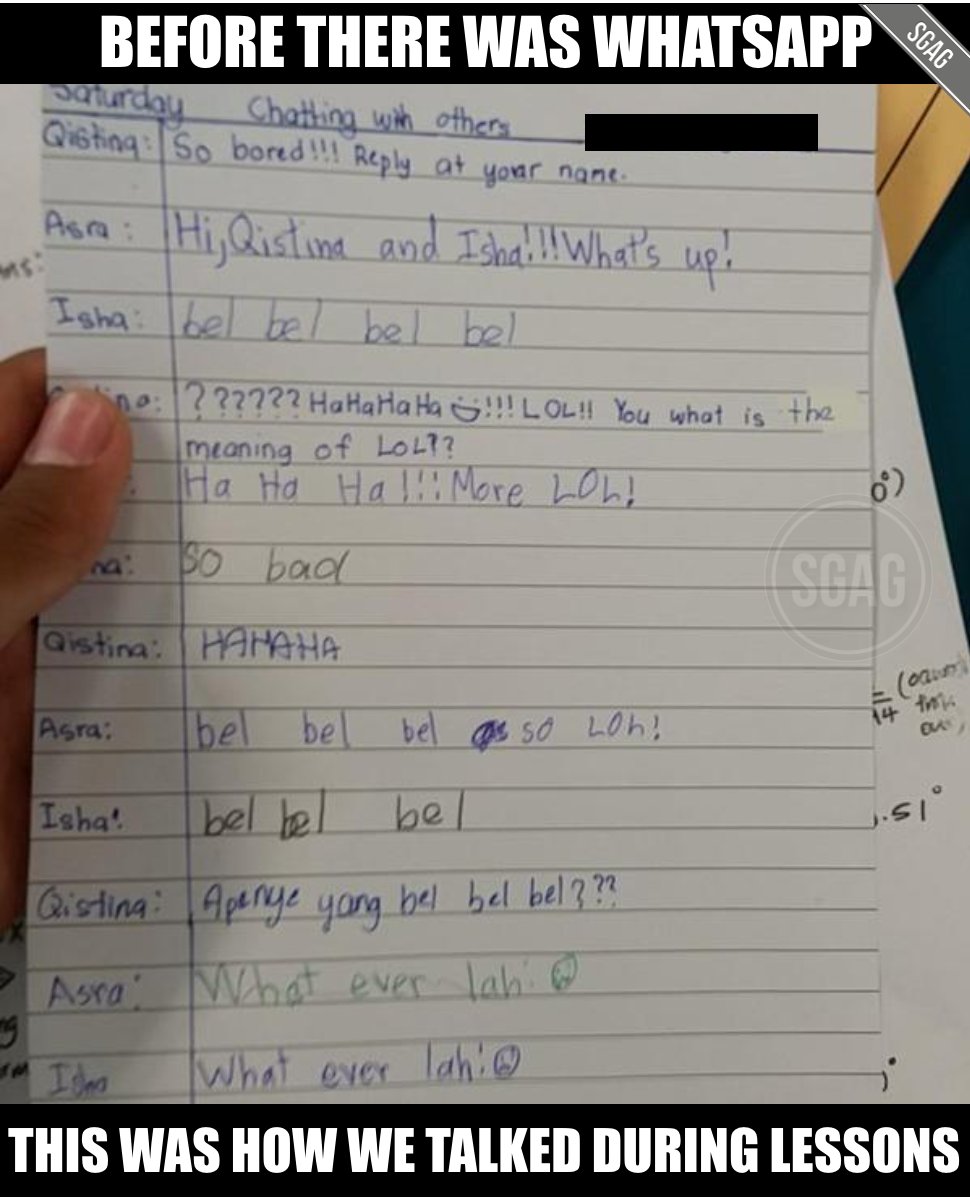 BEFORE THERE WAS WHATSAPP
SGAG
Saturday Chatting with others
Qistina: So bored!!! Reply at your name.
Asra: Hi, Qistina and Isha!!! What's up!
Isha: bel bel bel bel
na: ?????? HaHaHaHa!!! LOL!! You what is the
meaning of LOL??
: Ha Ha Ha!!! More LOL!
0°)
SGAG
ha: so bad
Qistina: HAHAHA
Asra: bel bel bel so LOL!
Isha: bel bel bel
.51°
Qistina: Apenye yang bel bel bel???
Asra: What ever lah:
Isha What ever lah:
THIS WAS HOW WE TALKED DURING LESSONS